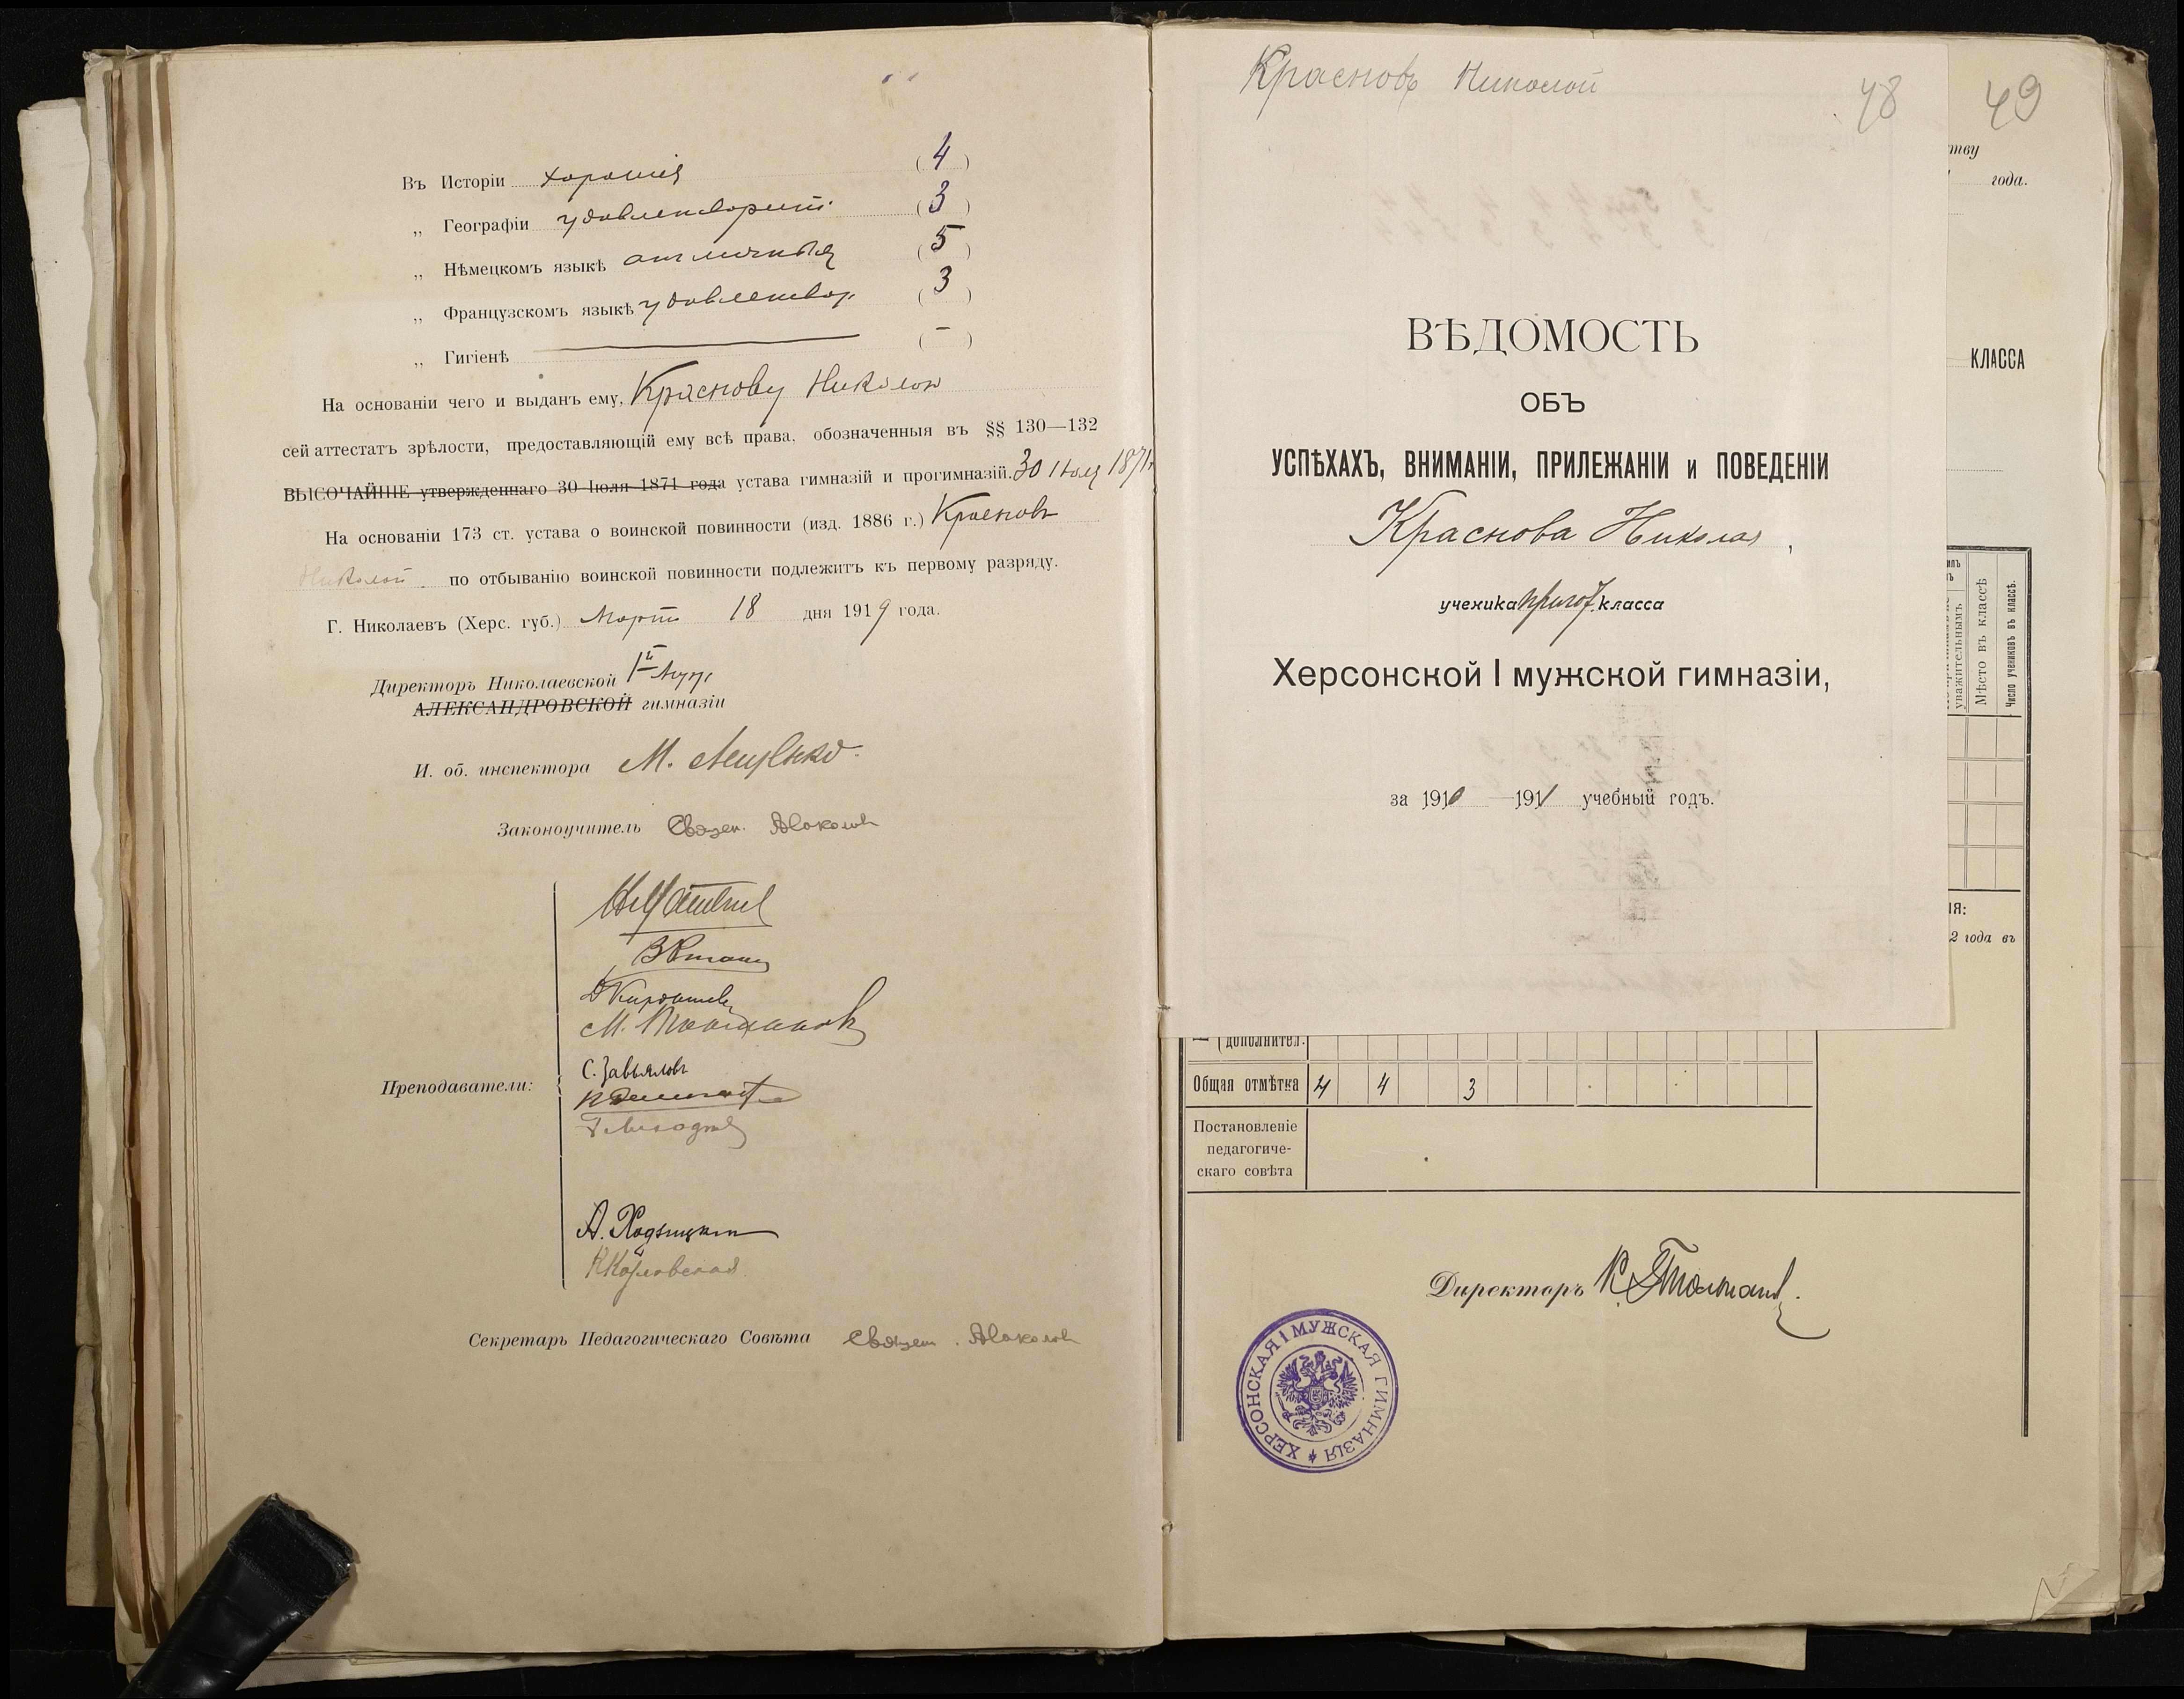 Въ Исторіи хорошія (4)
„ Географіи удовлетворит. (3)
„ Нѣмецкомъ языкѣ отличныя (5)
„ Французскомъ языкѣ удовлетвор. (3)
„ Гигіенѣ (–)
На основаніи чего и выданъ ему, Краснову Николаю
сей аттестатъ зрѣлости, предоставляющій ему всѣ права, обозначенныя въ §§ 130—132
ВЫСОЧАЙШЕ утвержденнаго 30 Іюля 1871 года устава гимназій и прогимназій. 30 Іюля 1871 г.
На основаніи 173 ст. устава о воинской повинности (изд. 1886 г.) Красновъ
Николай по отбыванію воинской повинности подлежитъ къ первому разряду.
Г. Николаевъ (Херс. губ.) Марта 18 дня 1919 года.
Директоръ Николаевской 1й
АЛЕКСАНДРОВСКОЙ гимназіи
И. об. инспектора М. Лещенко.
Законоучитель Священ.
Преподаватели:
С. Завьяловъ
А. Ходзицкій
Секретарь Педагогическаго Совѣта Священ.
Красновъ Николай
48
49
ВѢДОМОСТЬ
ОБЪ
УСПѢХАХЪ, ВНИМАНІИ, ПРИЛЕЖАНІИ и ПОВЕДЕНІИ
Краснова Николая,
ученика пригот. класса
Херсонской I мужской гимназіи,
за 1910—1911 учебный годъ.
тву
года.
КЛАССА
уважительнымъ
Мѣсто въ классѣ
Число учениковъ въ классѣ.
ІЯ:
2 года въ
дополнител.
Общая отмѣтка 4 4 3
Постановленіе
педагогиче-
скаго совѣта
Директоръ
ХЕРСОНСКАЯ I МУЖСКАЯ ГИМНАЗІЯ